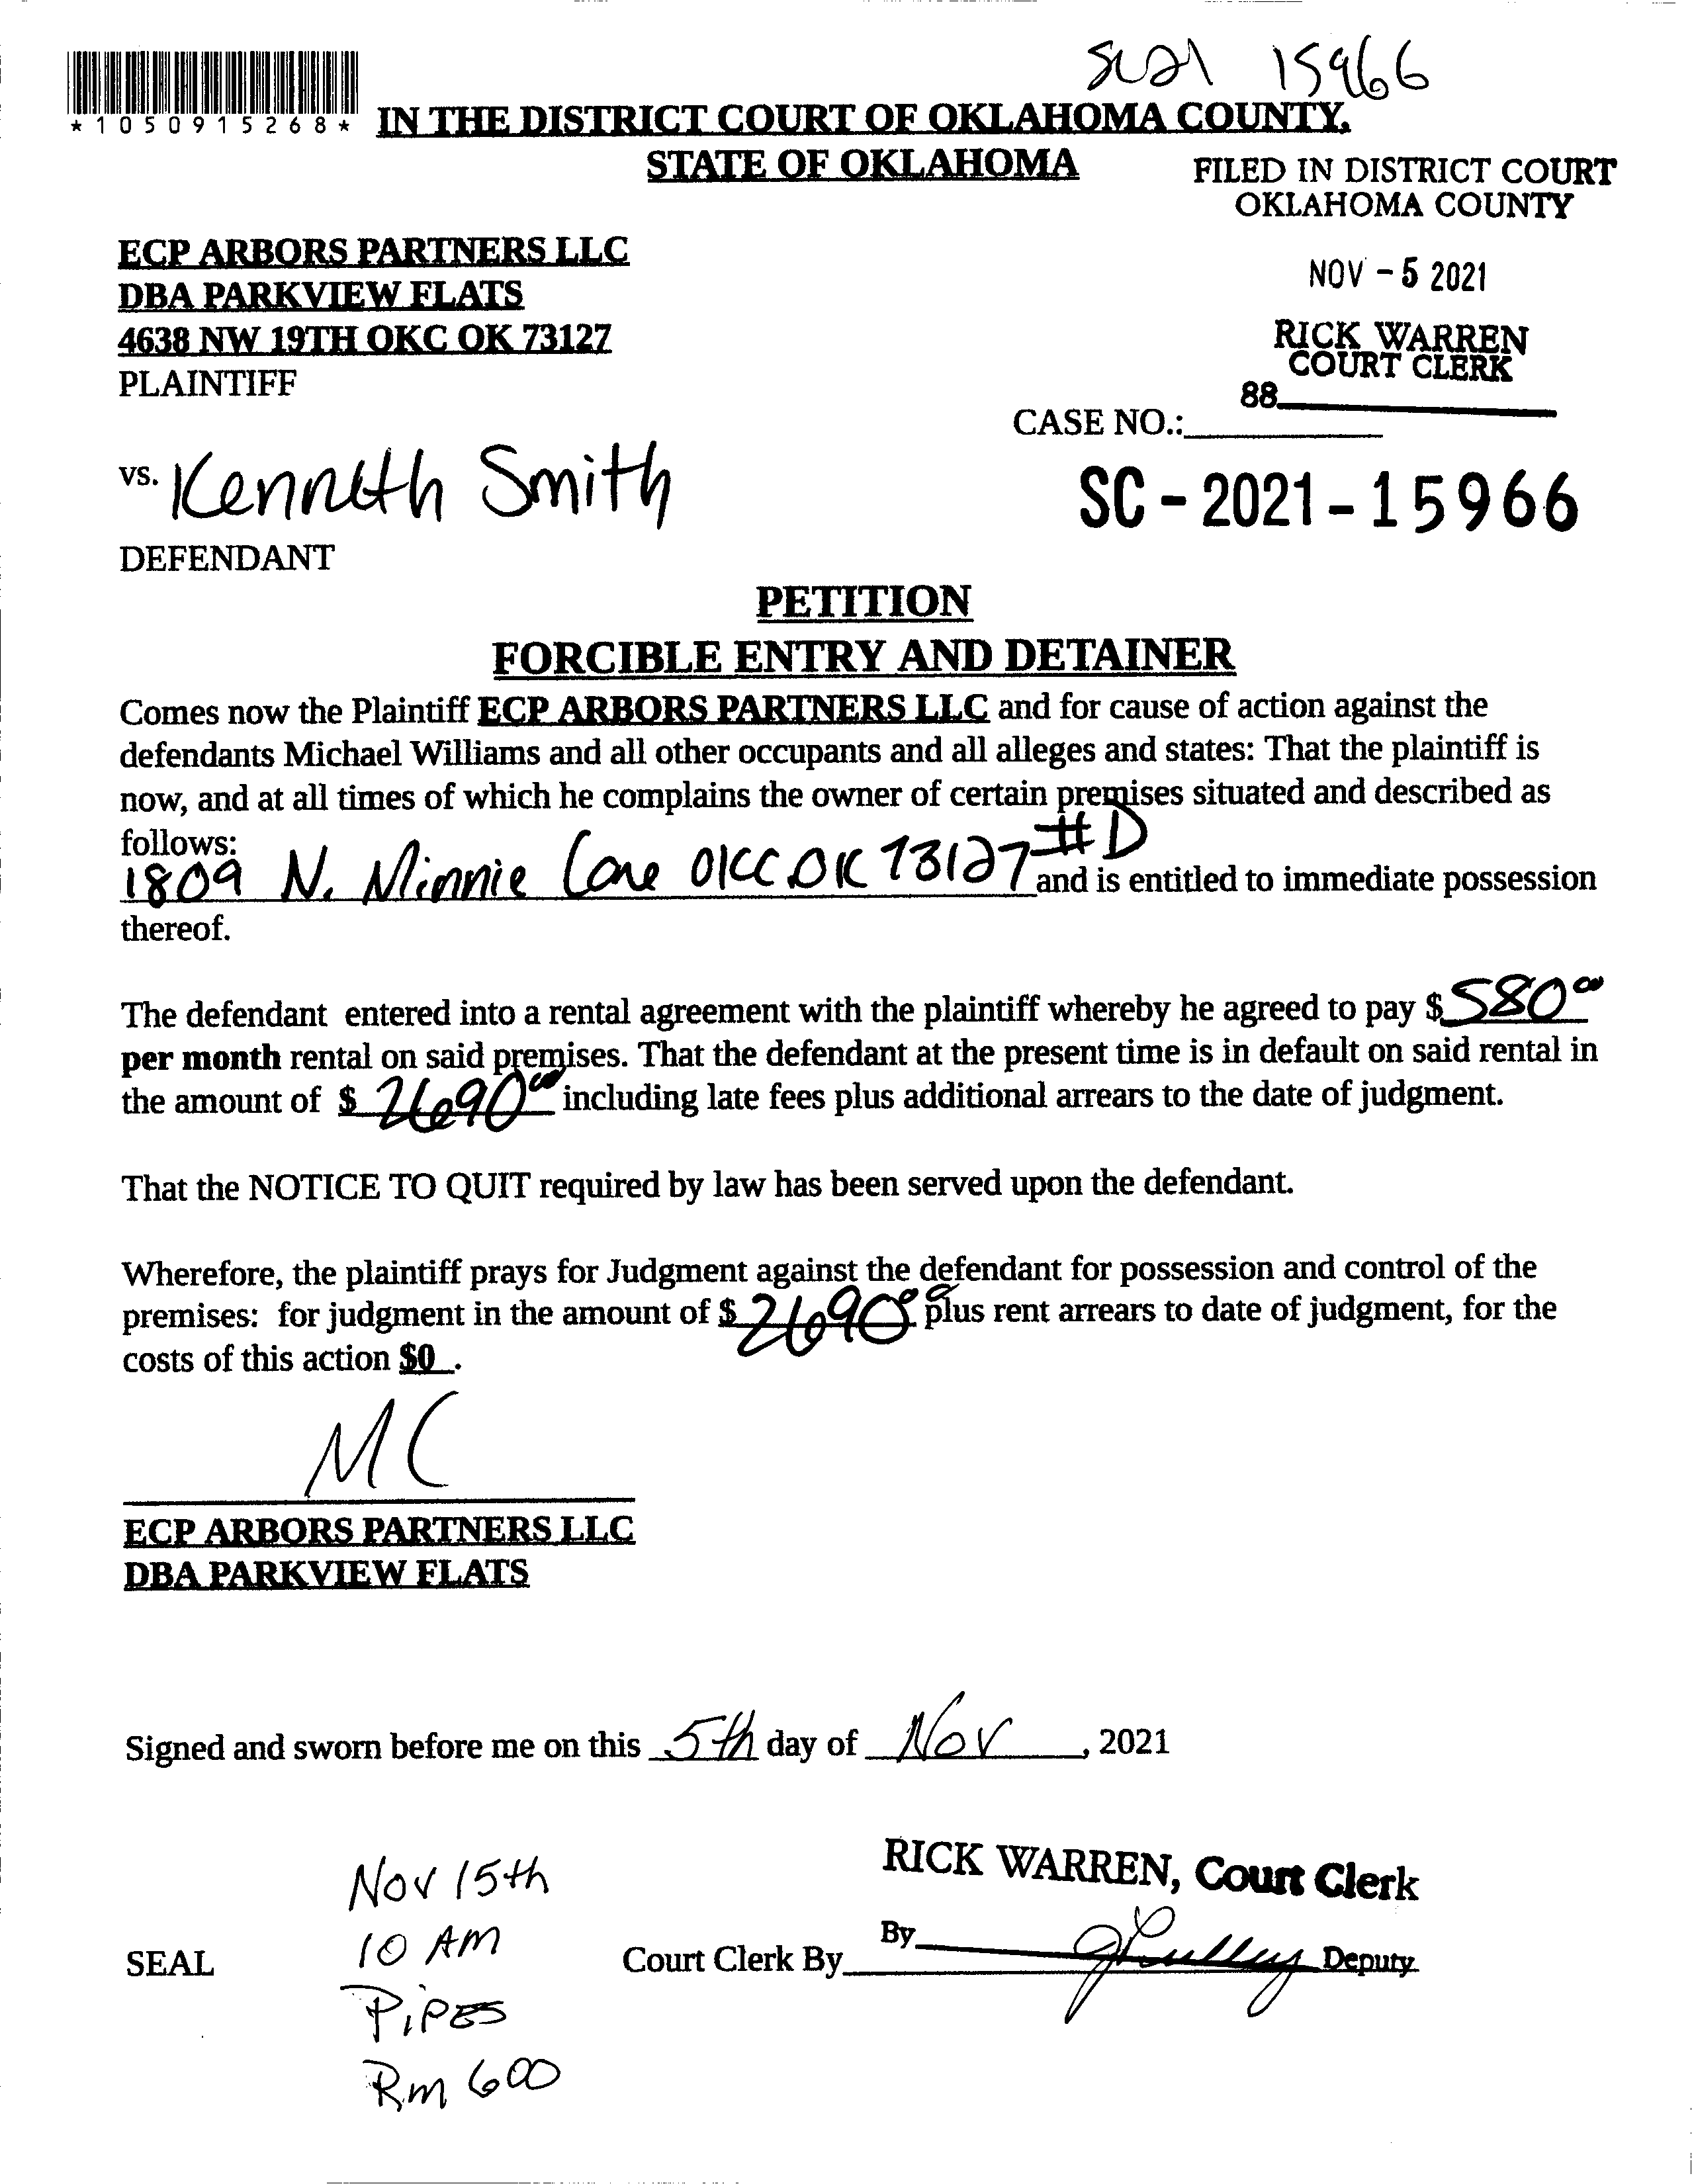 SC21 15966
*1050915268*
IN THE DISTRICT COURT OF OKLAHOMA COUNTY,
STATE OF OKLAHOMA
FILED IN DISTRICT COURT
OKLAHOMA COUNTY
ECP ARBORS PARTNERS LLC
DBA PARKVIEW FLATS
NOV - 5 2021
4638 NW 19TH OKC OK 73127
PLAINTIFF
RICK WARREN
COURT CLERK
88
CASE NO.:
vs. Kenneth Smith
SC - 2021 - 15966
DEFENDANT
PETITION
FORCIBLE ENTRY AND DETAINER
Comes now the Plaintiff ECP ARBORS PARTNERS LLC and for cause of action against the
defendants Michael Williams and all other occupants and all alleges and states: That the plaintiff is
now, and at all times of which he complains the owner of certain premises situated and described as
follows:
1809 N. Minnie Lane OKC OK 73127 #D and is entitled to immediate possession
thereof.
The defendant entered into a rental agreement with the plaintiff whereby he agreed to pay $ 580.00
per month rental on said premises. That the defendant at the present time is in default on said rental in
the amount of $ 2690.00 including late fees plus additional arrears to the date of judgment.
That the NOTICE TO QUIT required by law has been served upon the defendant.
Wherefore, the plaintiff prays for Judgment against the defendant for possession and control of the
premises: for judgment in the amount of $ 2690.00 plus rent arrears to date of judgment, for the
costs of this action $0 .
MC
ECP ARBORS PARTNERS LLC
DBA PARKVIEW FLATS
Signed and sworn before me on this 5th day of Nov , 2021
RICK WARREN, Court Clerk
Nov 15th
10 AM
SEAL
Court Clerk By
By Deputy
PiPES
Rm 600